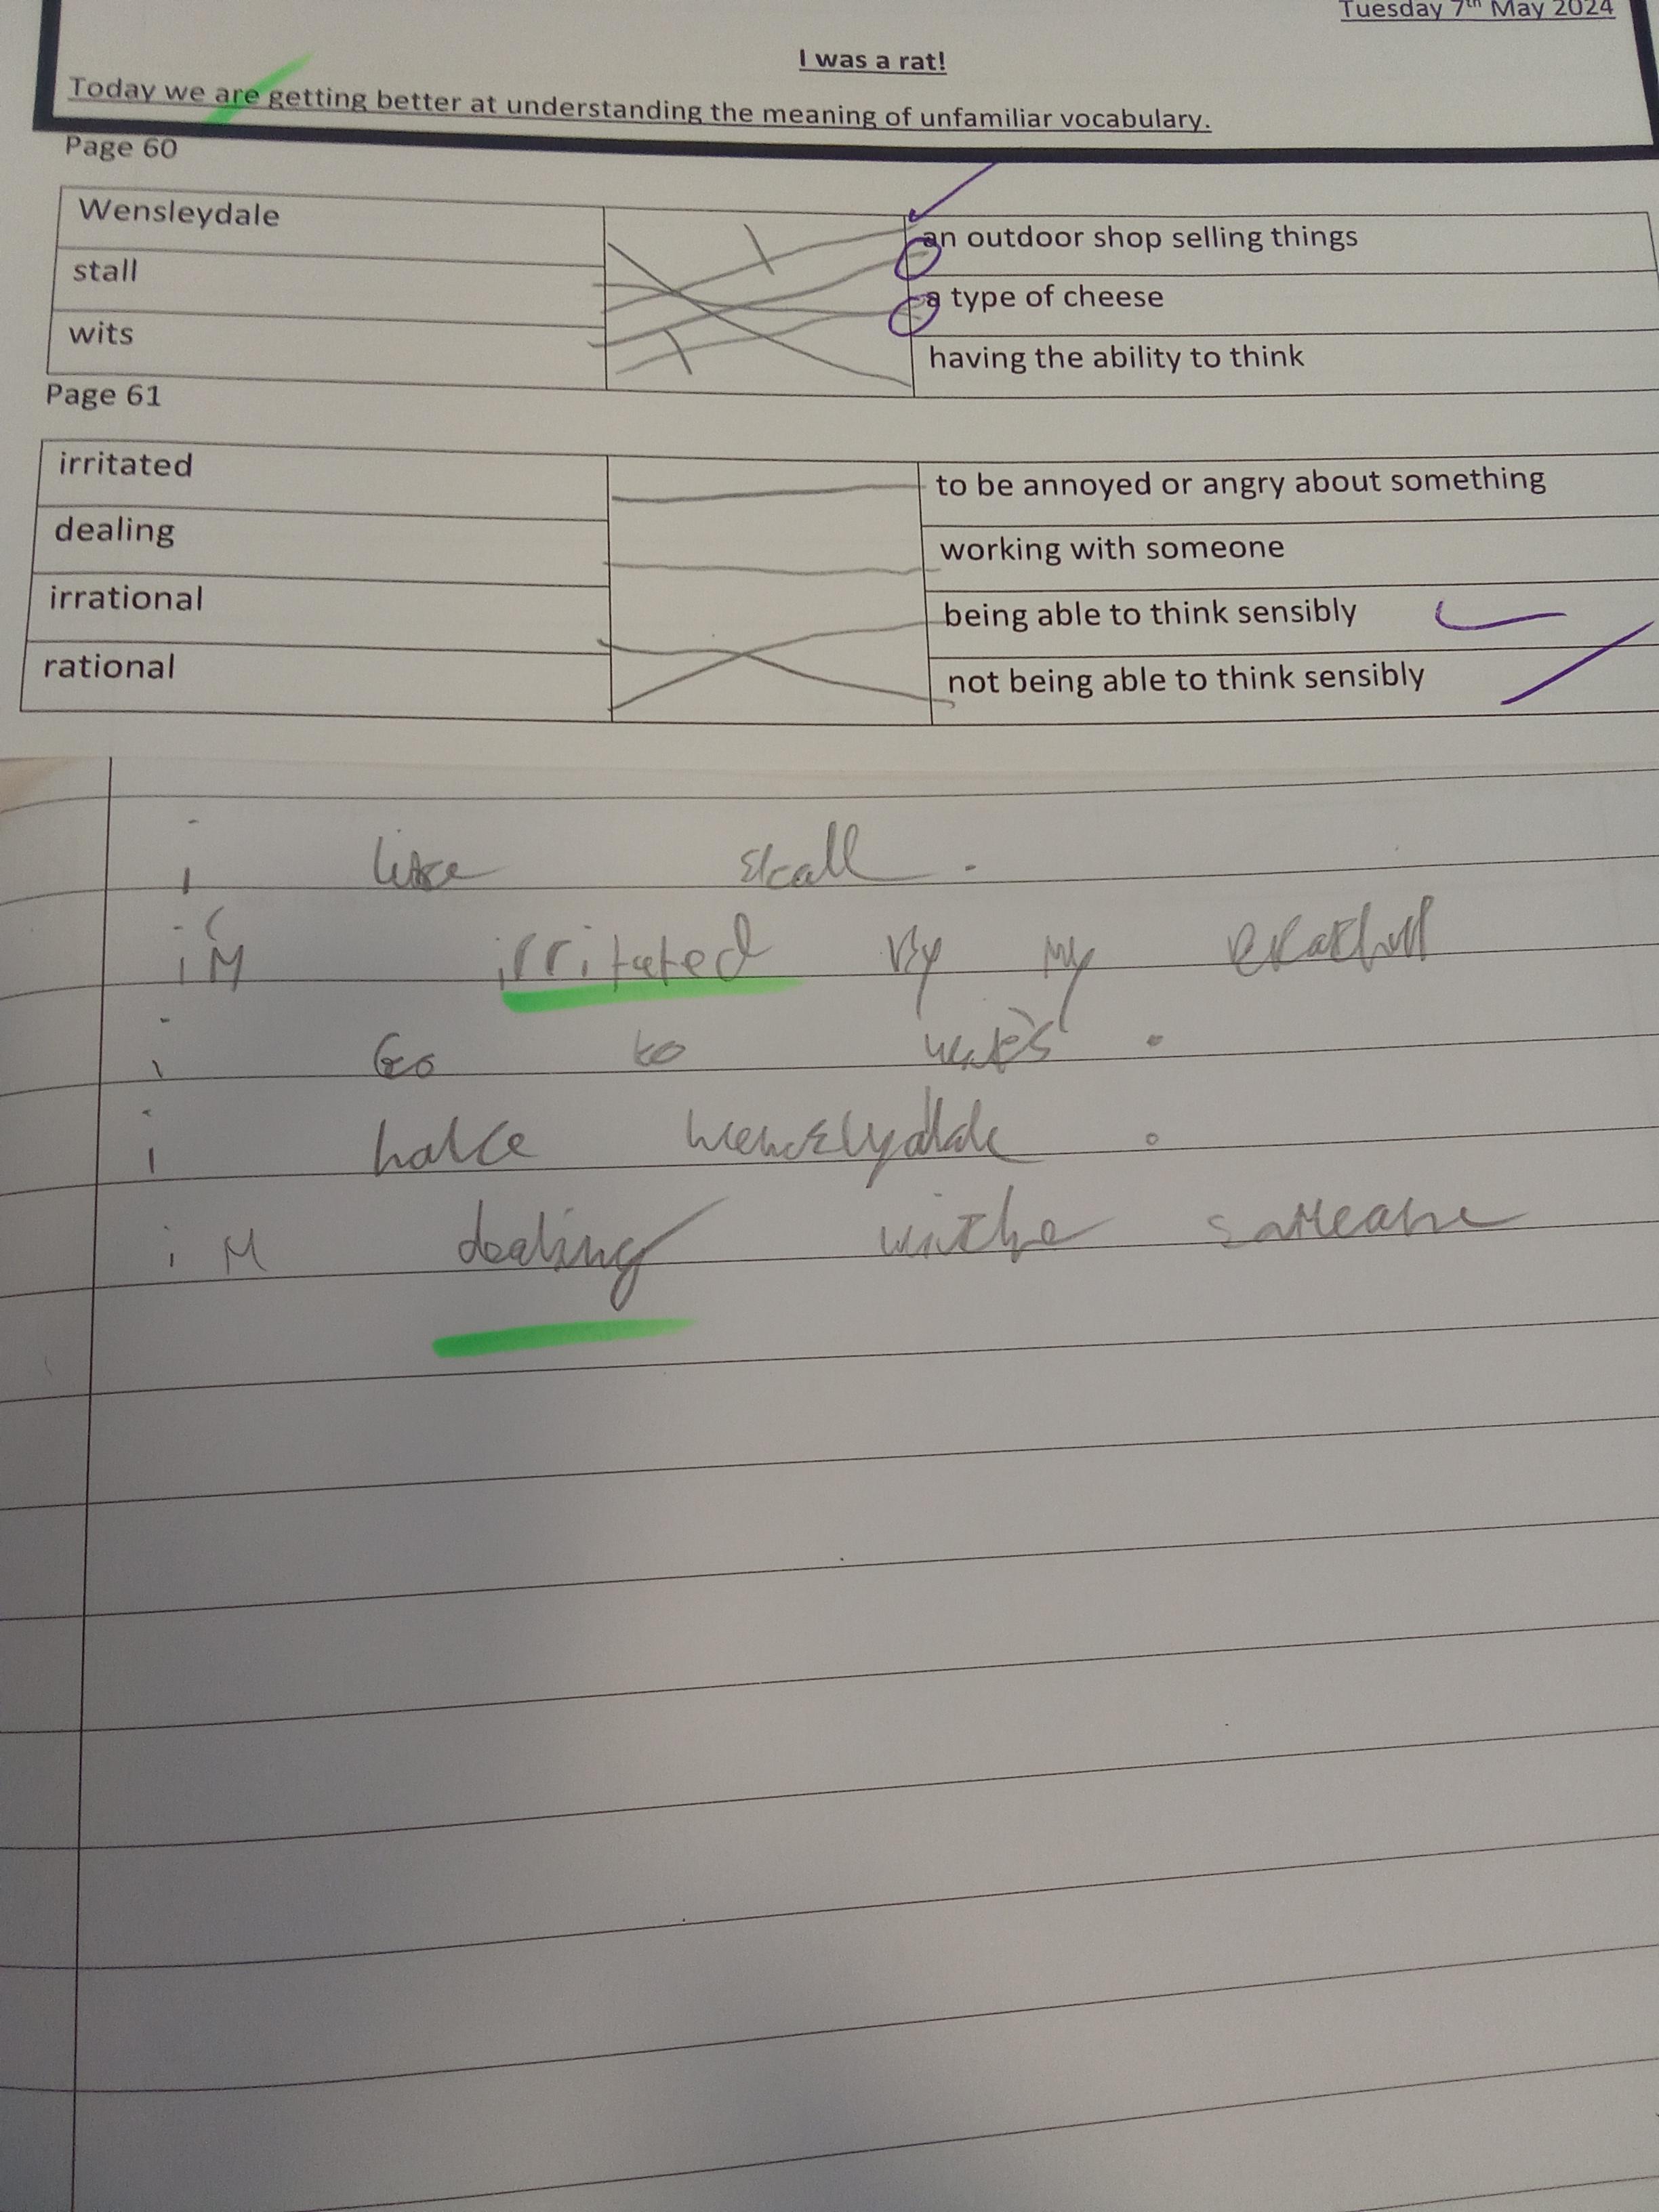 Tuesday 7th May 2024
I was a rat!
Today we are getting better at understanding the meaning of unfamiliar vocabulary.
Page 60
Wensleydale
an outdoor shop selling things
stall
a type of cheese
wits
having the ability to think
Page 61
irritated
to be annoyed or angry about something
dealing
working with someone
irrational
being able to think sensibly
rational
not being able to think sensibly
i like stall.
i'M irritated By my
i Go to
i
i M dealing withe